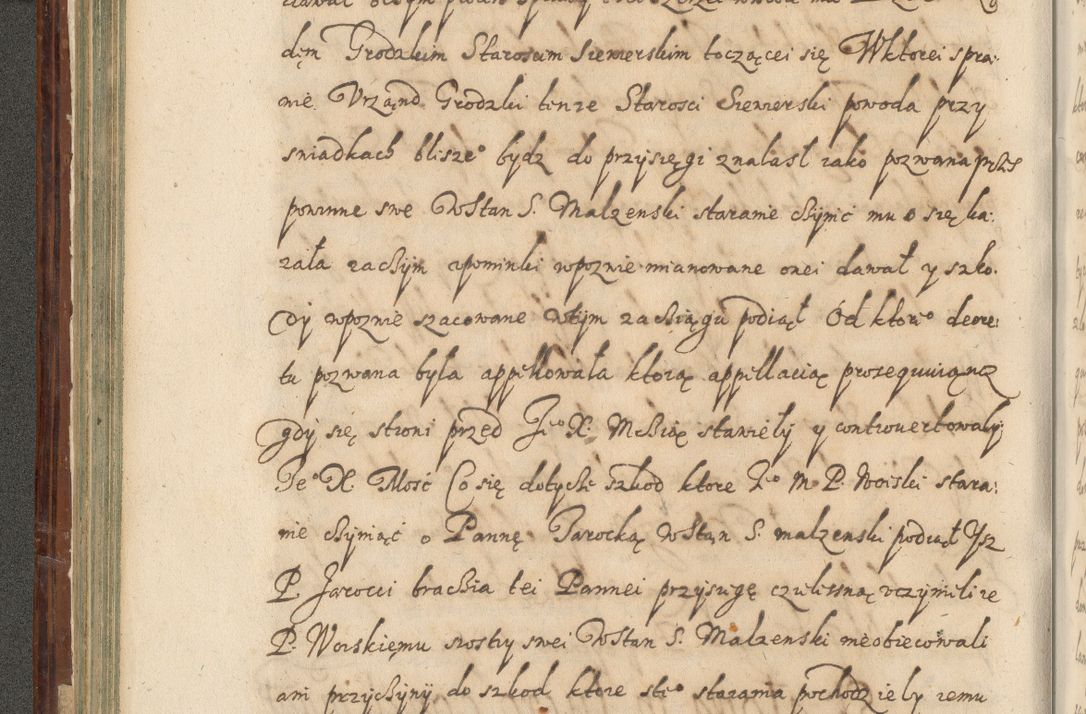 dęm Grodzkim Starosum Siewerskim toczącei się Wktorei spra:
wie. Vrząnd Grodzki tenze Starosci Siewierski powoda przy
swiadkach blisze° bydz do przysięgi znalasł iako pozwana przes
powinne swe WStan S. Malzenski staranie czynić mu o się ka:
zała zaczym upominki wpoznie mianowane onei dawał y szko:
dy wpoznie szacowane wtym zaciągu podiął Od ktore° decre:
tu pozwana była appellowała ktorą appellacią prosequuiąncz
gdy się strony przed Je° X. Mcią stawiely y controuertowaly
Je° X. Mość Co się dotycze szkod ktore Je° M P. Woiski stara:
nie czyniąć o Pannę Jarocką WStan S. malzenski podiął Ysz
P. Jarocci bracia tei Pannei przysięgę czelissną vczynili ze
P. Woiskiemu siostry swei WStan S. Malzenski nieobiecowali
ani przyczyny do szkod ktore ste° starania pochodziely iemu